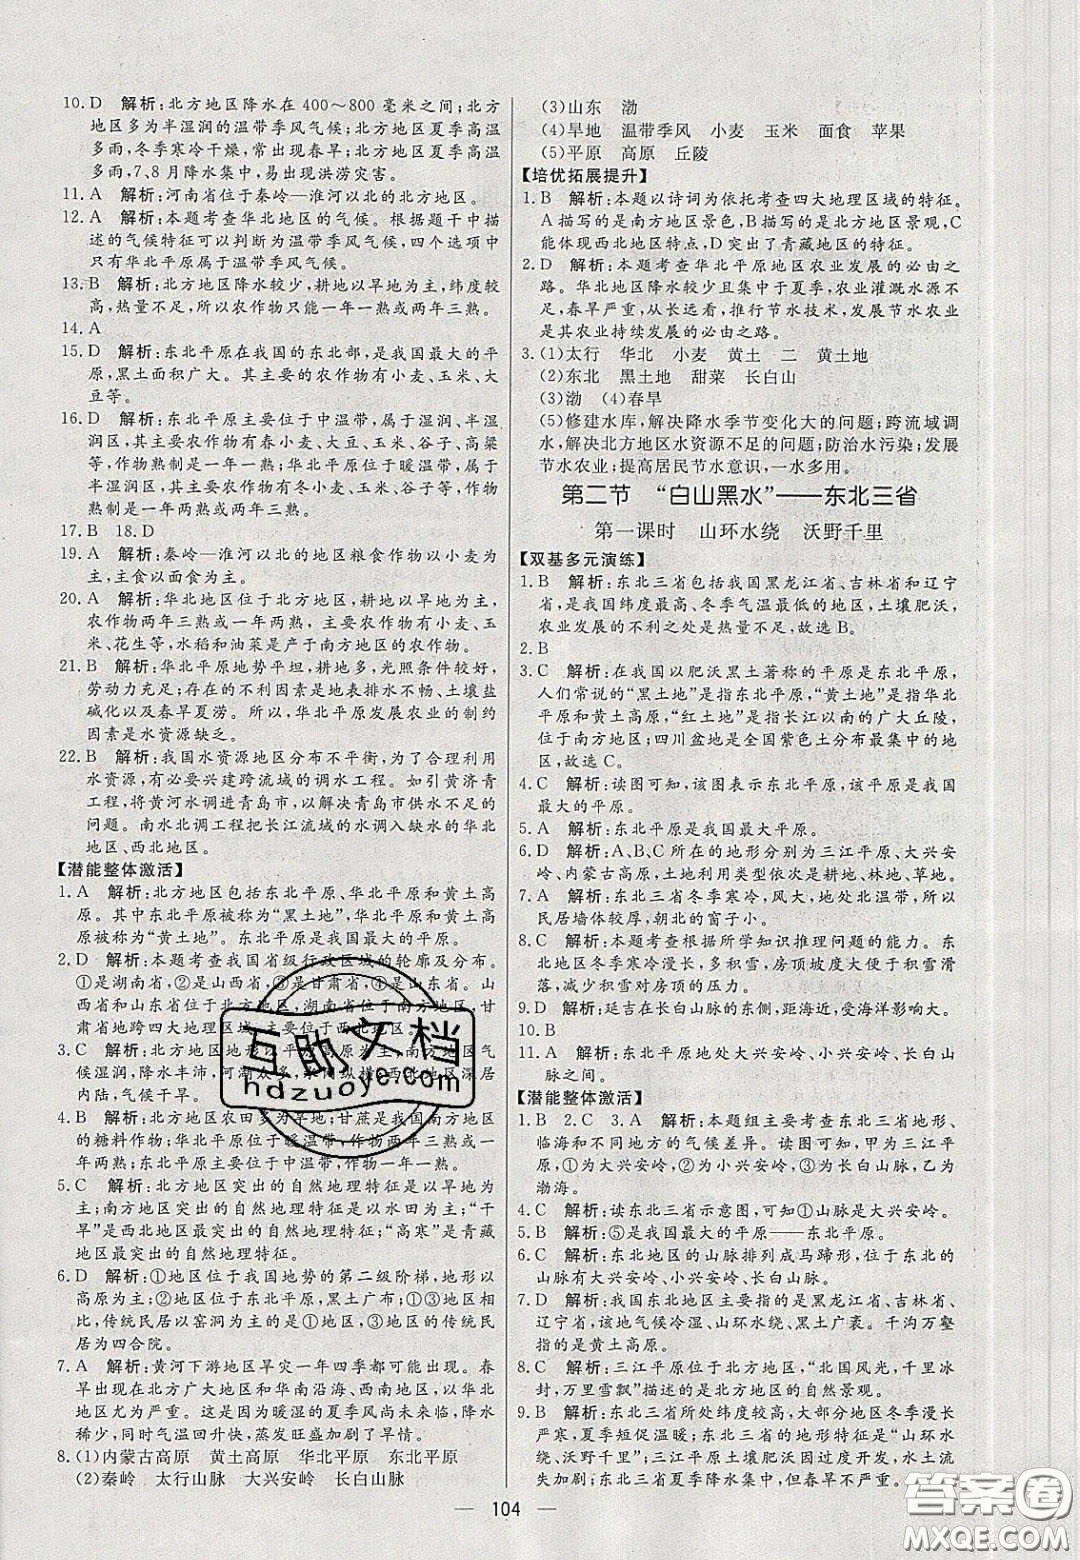 10. D　解析:北方地区降水在 400～800 毫米之间;北方
地区多为半湿润的温带季风气候;北方地区夏季高温
多雨,冬季寒冷干燥,常出现春旱;北方地区夏季高温
多雨,7、8 月降水集中,易出现洪涝灾害。
11. A　解析:河南省位于秦岭—淮河以北的北方地区。
12. A　解析:本题考查华北地区的气候。根据题干中描
述的气候特征可以判断为温带季风气候,四个选项中
只有华北平原属于温带季风气候。
13. B　解析:北方地区降水较少,耕地以旱地为主,纬度较
高,热量不足,所以农作物只能一年一熟或两年三熟。
14. A
15. D　解析:东北平原在我国的东北部,是我国最大的平
原,黑土面积广大。其主要的农作物有小麦、玉米、大
豆等。
16. D　解析:东北平原主要位于中温带,属于湿润、半湿
润区,其主要的农作物有春小麦、大豆、玉米、谷子、高粱
等,作物熟制是一年一熟;华北平原位于暖温带,属于半
湿润区,其主要的农作物有冬小麦、棉花、玉米、谷子、甘
薯等,作物熟制主要是两年三熟或一年两熟。
17. B　18. D
19. A　解析:秦岭—淮河以北的地区粮食作物以小麦为
主,主食以面食为主。
20. A　解析:华北地区位于北方地区,耕地以旱地为主,
农作物两年三熟或一年两熟,主要农作物有小麦、玉
米、花生等,水稻和油菜是产于南方地区的农作物。
21. B　解析:华北平原地势平坦,耕地多,光照条件较好,
劳动力充足;存在的不利因素是地表排水不畅、土壤盐
碱化以及春旱夏涝。所以,华北平原发展农业的制约
因素是水资源缺乏。
22. B　解析:我国水资源地区分布不平衡,为了合理利用
水资源,有必要兴建跨流域的调水工程。如引黄济青
工程,将黄河水调进青岛市,以解决青岛市供水不足的
问题。南水北调工程把长江流域的水调入缺水的华北
地区、西北地区。
【潜能整体激活】
1. A　解析:北方地区包括东北平原、华北平原和黄土高
原。其中东北平原被称为“黑土地”,华北平原和黄土高
原被称为“黄土地”。东北平原是我国最大的平原。
2. D　解析:本题考查我国省级行政区域的轮廓及分布。
①是湖南省,②是山西省,③是甘肃省,④是山东省。山
西省和山东省位于北方地区,湖南省位于南方地区,甘
肃省地跨四大地理区域,主要位于西北地区。
3. C　解析:北方地区地形以平原、高原为主;南方地区气
候湿润,降水丰沛,河湖众多;西北地区深居
内陆,气候干旱。
4. B　解析:北方地区农田多为旱地;甘蔗是南方地区
的糖料作物;华北平原位于暖温带,作物两年三熟或一
年两熟;东北平原位于中温带,作物一年一熟。
5. C　解析:北方地区突出的自然地理特征是以旱地为
主;南方地区突出的自然地理特征是以水田为主;“干
旱”是西北地区最突出的自然地理特征;“高寒”是青藏
地区突出的自然地理特征。
6. D　解析:①地区位于我国地势的第二级阶梯,地形以
高原为主;②地区位于东北平原,黑土广布;①③地区相
比,传统民居以窑洞为主的是①地区,③地区的传统民居
为四合院。
7. A　解析:黄河下游地区旱灾一年四季都可能出现。春
旱出现在北方广大地区和华南沿海、西南地区,以华北
地区尤为严重。这是因为暖湿的夏季风尚未来临,降水
稀少,气温回升快,蒸发旺盛加剧了旱情。
8. (1)内蒙古高原　黄土高原　华北平原　东北平原
(2)秦岭　太行山脉　大兴安岭　长白山脉
(3)山东　渤
(4)旱地　温带季风　小麦　玉米　面食　苹果
(5)平原　高原　丘陵
【培优拓展提升】
1. B　解析:本题以诗词为依托考查四大地理区域的特征。
A 描写的是南方地区景色,B 描写的是北方地区景观,C
能体现西北地区特点,D 突出了青藏地区的特征。
2. D　解析:本题考查华北平原地区农业发展的必由之
路。华北地区降水较少且集中于夏季,农业灌溉水源不
足,春旱严重,从长远看,推行节水技术,发展节水农业
是其农业持续发展的必由之路。
3. (1)太行　华北　小麦　黄土　二　黄土地
(2)东北　黑土地　甜菜　长白山
(3)渤　(4)春旱
(5)修建水库,解决降水季节变化大的问题;跨流域调
水,解决北方地区水资源不足的问题;防治水污染;发展
节水农业;提高居民节水意识,一水多用。
第二节　“白山黑水”——东北三省
第一课时　山环水绕　沃野千里
【双基多元演练】
1. B　解析:东北三省包括我国黑龙江省、吉林省和辽宁
省,是我国纬度最高、冬季气温最低的地区,土壤肥沃,
农业发展的不利之处是热量不足,故选 B。
2. B
3. C　解析:在我国以肥沃黑土著称的平原是东北平原,
人们常说的“黑土地”是指东北平原,“黄土地”是指华北
平原和黄土高原,“红土地”是指长江以南的广大丘陵,
位于南方地区;四川盆地是全国紫色土分布最集中的地
区,故选 C。
4. C　解析:读图可知,该图表示东北平原,该平原是我国
最大的平原。
5. A　解析:东北平原是我国最大平原。
6. D　解析:A、B、C 所在的地形分别为三江平原、大兴安
岭、内蒙古高原,土地利用类型依次是耕地、林地、草地。
7. A　解析:东北三省冬季寒冷,风大,地处北温带,所以
民居墙体较厚,朝北的窗子小。
8. C　解析:本题考查根据所学知识推理问题的能力。东
北地区冬季寒冷漫长,多积雪,房顶坡度大便于积雪滑
落,减少积雪对房顶的压力。
9. D　解析:延吉在长白山脉的东侧,距海近,受海洋影响大。
10. B
11. A　解析:东北平原地处大兴安岭、小兴安岭、长白山
脉之间。
【潜能整体激活】
1. B　2. C　3. A　解析:本题组主要考查东北三省地形、
临海和不同地方的气候差异。读图可知,甲为三江平
原,①为大兴安岭,②为小兴安岭,③为长白山脉,乙为
渤海。
4. C　解析:读东北三省示意图,可知①山脉是大兴安岭。
5. B　解析:⑤是我国最大的平原——东北平原。
6. C　解析:东北地区的山脉排列成马蹄形,位于东北的
山脉有大兴安岭、小兴安岭、长白山脉。
7. D　解析:我国东北地区主要指的是黑龙江省、吉林省、
辽宁省,气候冷湿、山环水绕、黑土广袤。千沟万壑
指的是黄土高原。
8. C　解析:三江平原位于北方地区,“北国风光,千里冰
封,万里雪飘”描述的是北方地区的自然景观。
9. B　解析:东北三省所处纬度较高,大部分地区冬季严寒
漫长,夏季短促温暖;东北三省的地形特点是“山环水
绕、沃野千里”,山区降水多,植被茂密,水土流
失加剧;东北三省夏季降水集中,但春旱不严重。
104
互助文档
hdzuoye.com
答案圈
MXQE.COM